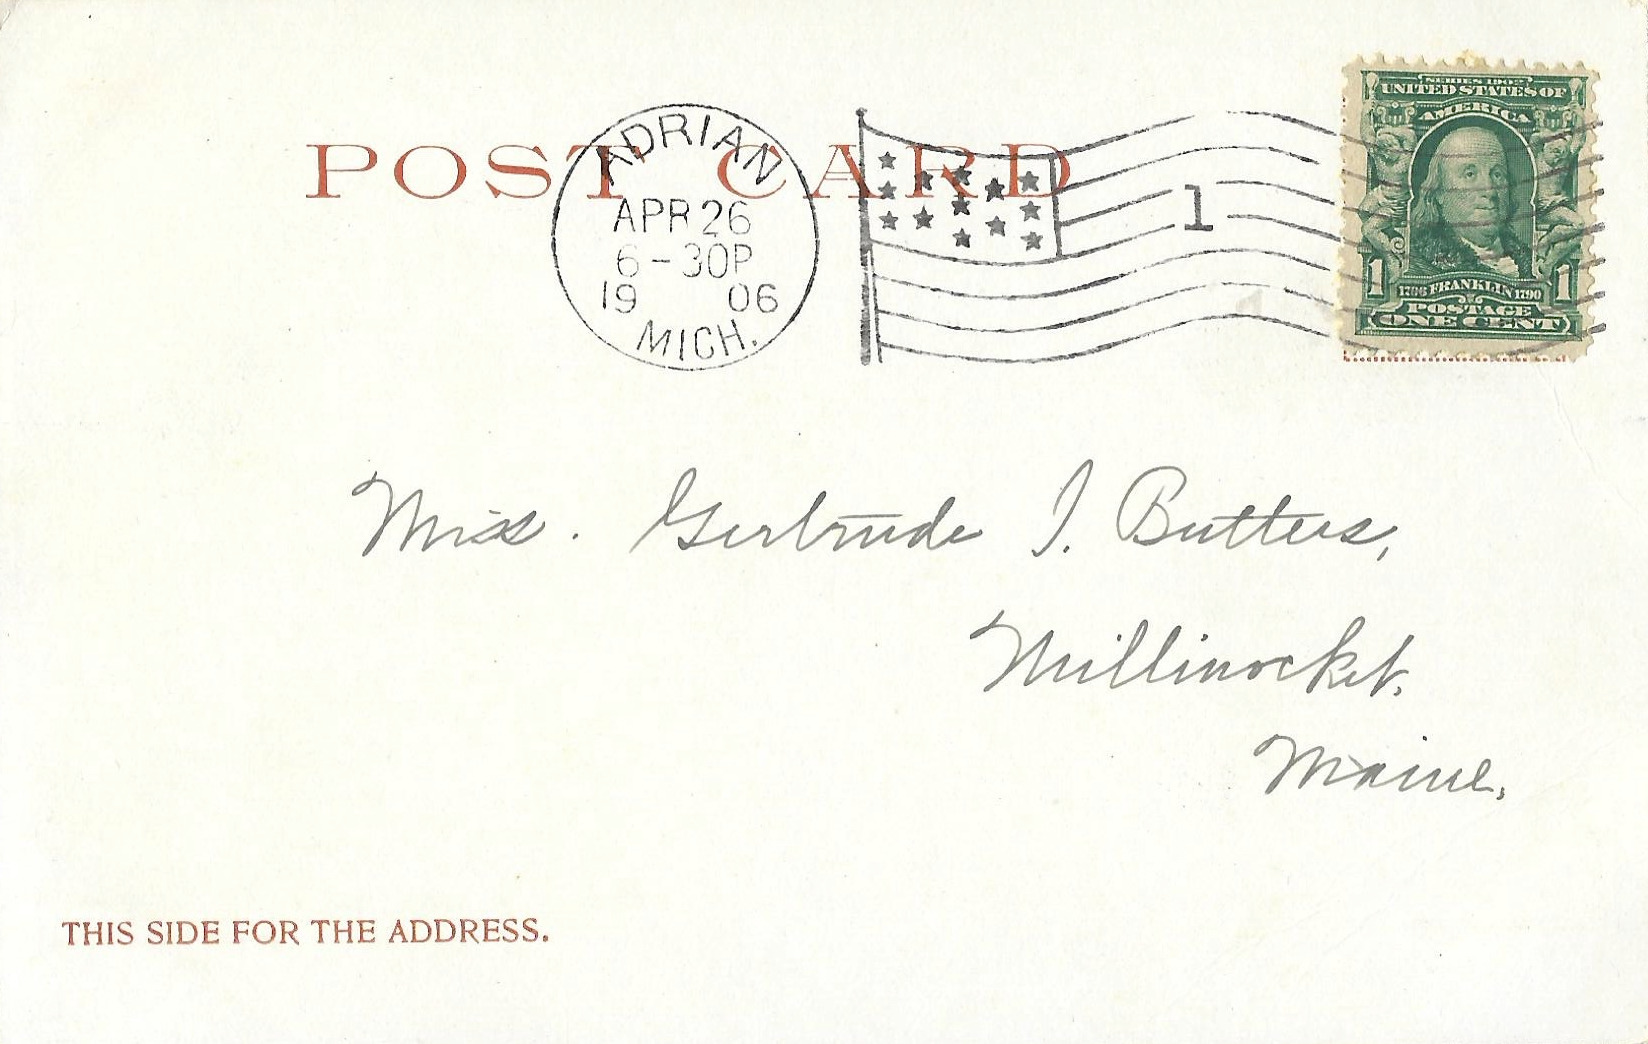 POST CARD
ADRIAN
APR 26
6-30P
19 06
MICH.
1
SERIES 1902
UNITED STATES OF
AMERICA
1 1706 FRANKLIN 1790 1
POSTAGE
ONE CENT
Miss. Gertrude I. Butters,
Millinocket.
Maine.
THIS SIDE FOR THE ADDRESS.